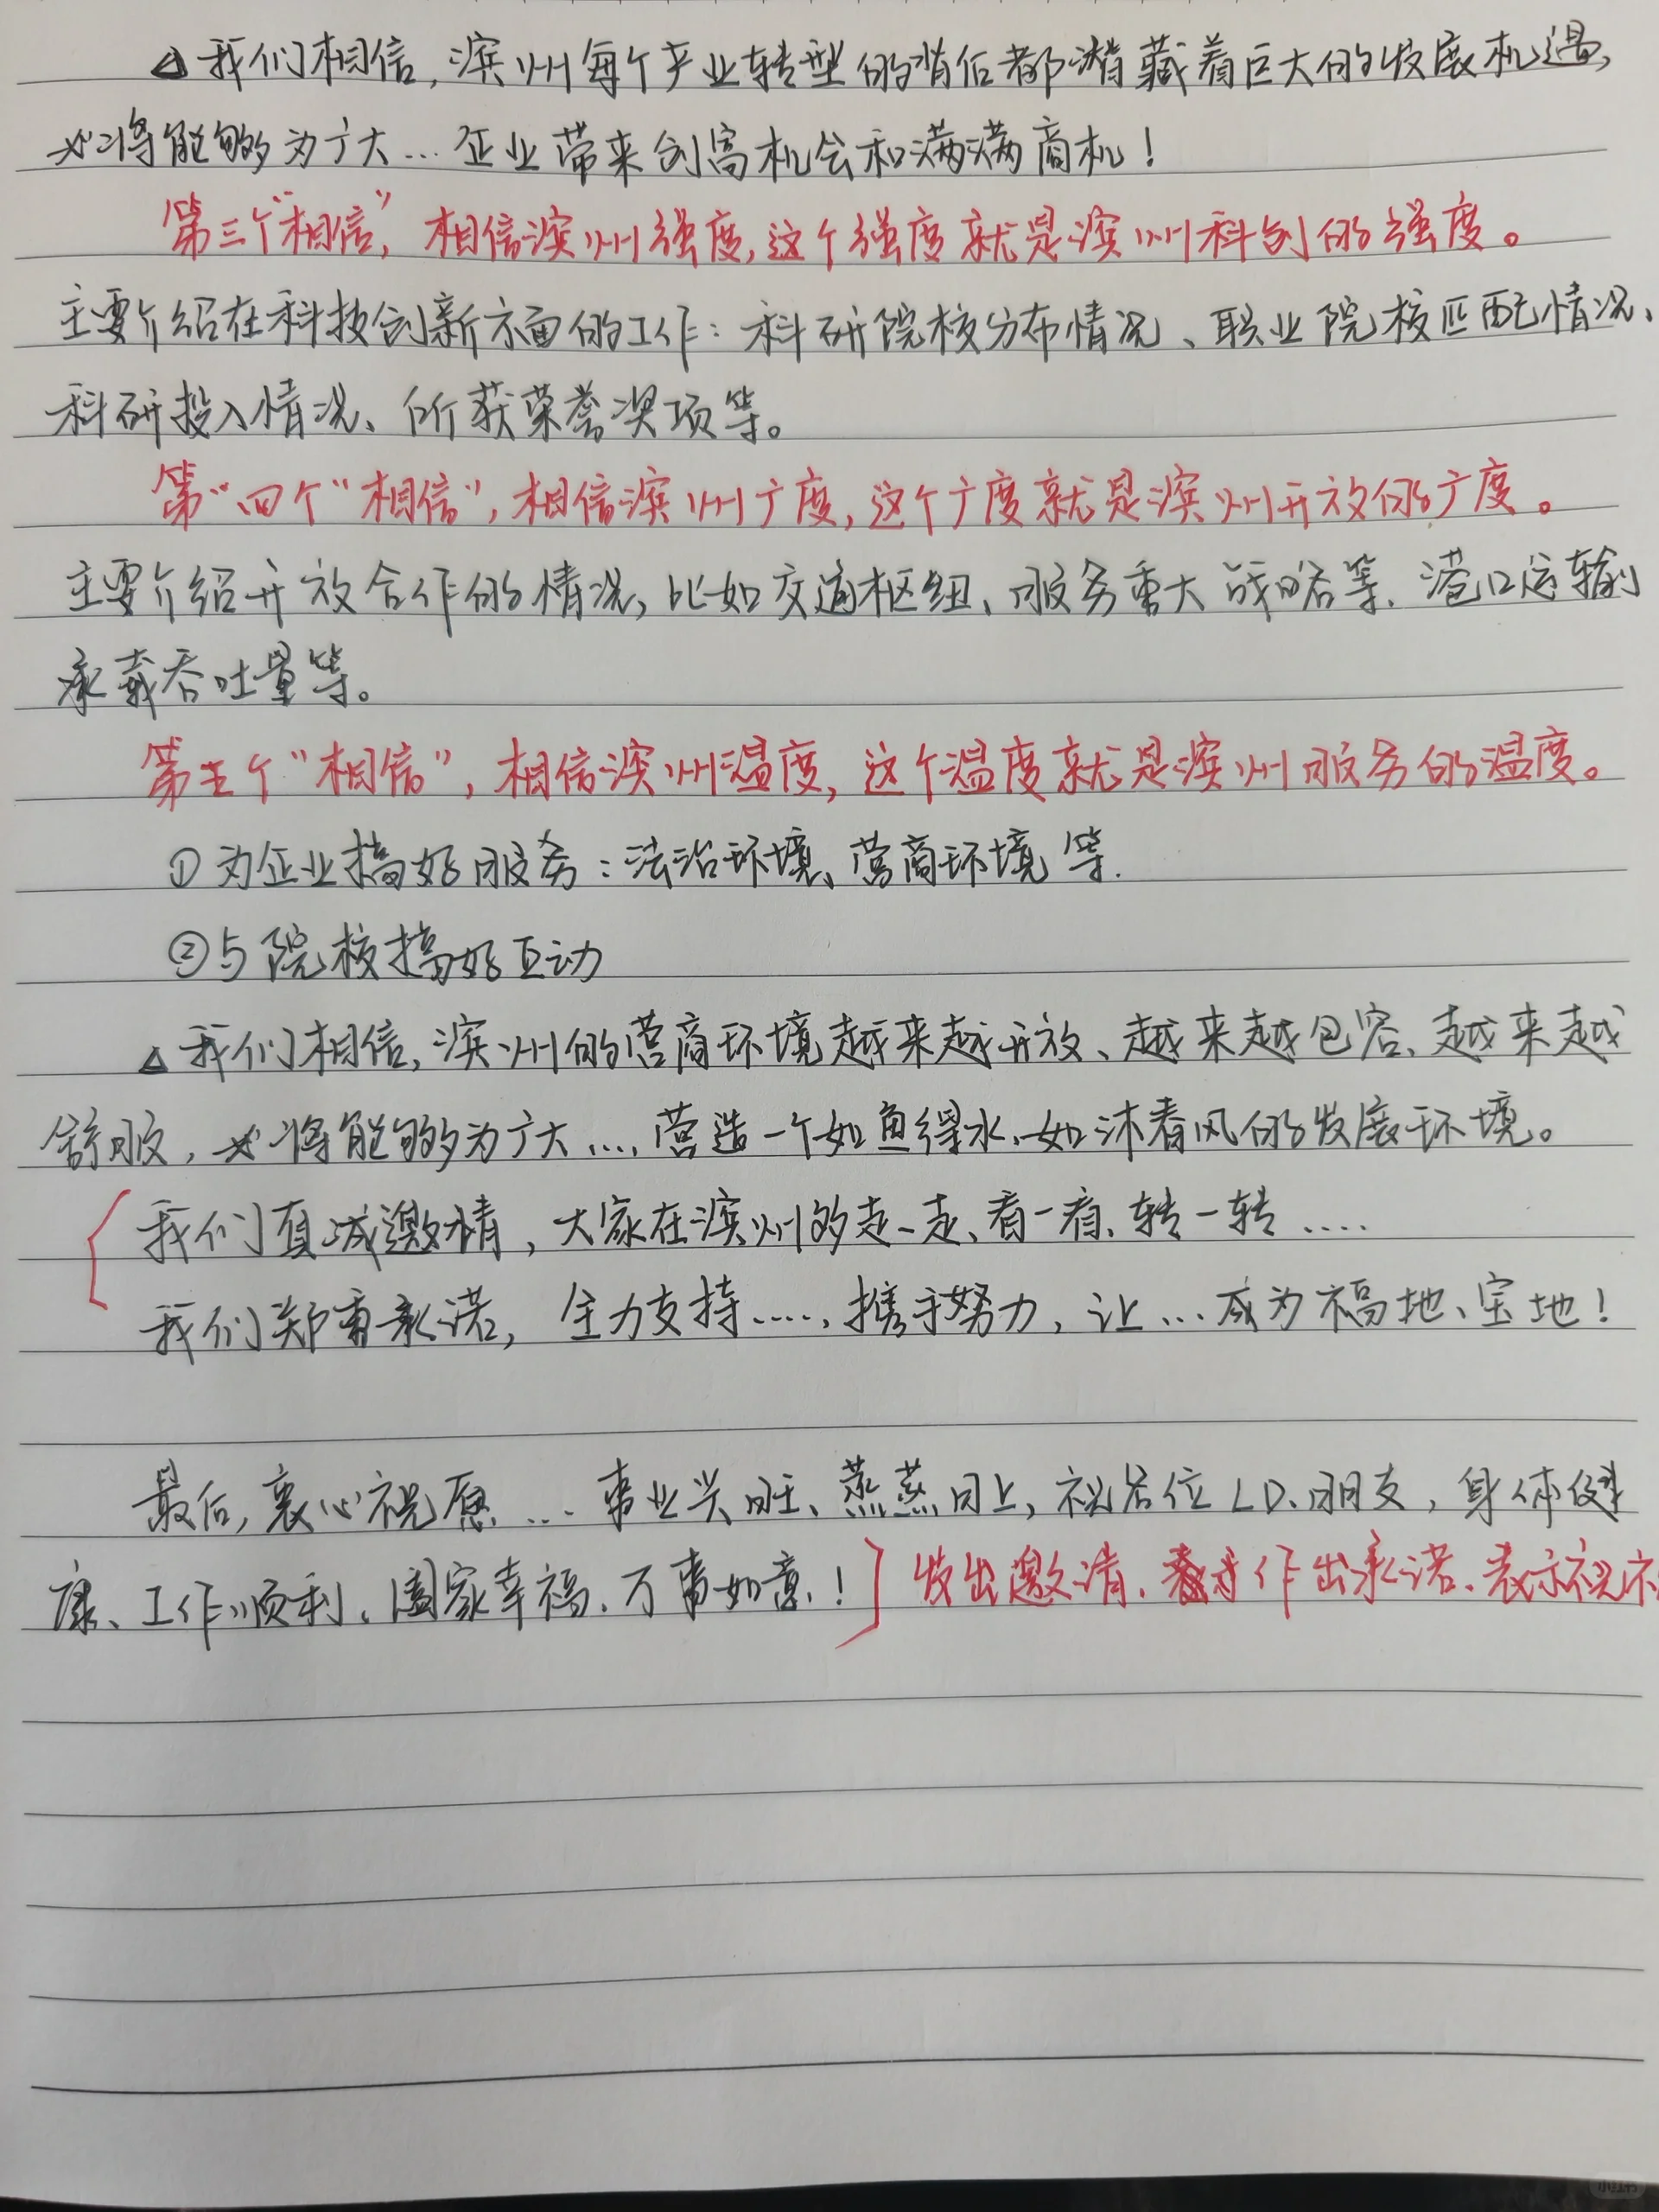 △我们相信,滨州每个产业转型的背后都潜藏着巨大的发展机遇,
必将能够为广大…企业带来创富机会和满满商机!
第三个“相信”,相信滨州强度,这个强度就是滨州科创的强度。
主要介绍在科技创新方面的工作:科研院校分布情况、职业院校匹配情况、
科研投入情况、所获荣誉奖项等。
第“四个“相信”,相信滨州广度,这个广度就是滨州开放的广度。
主要介绍开放合作的情况,比如交通枢纽、服务重大战略等.港口运输
承载吞吐量等。
第五个“相信”,相信滨州温度,这个温度就是滨州服务的温度。
①为企业搞好服务:法治环境、营商环境等.
②与院校搞好互动
△我们相信,滨州的营商环境越来越开放、越来越包容、越来越
舒服,必将能够为广大….营造一个如鱼得水、如沐春风的发展环境。
我们真诚邀情,大家在滨州多走一走、看一看、转一转….
我们郑重承诺,全力支持……,携手努力,让…成为福地、宝地!
最后,衷心祝愿…事业兴旺、蒸蒸日上,祝各位LD、朋友,身体健
康、工作顺利、阖家幸福、万事如意!
发出邀请.作出承诺.表示祝
小红书